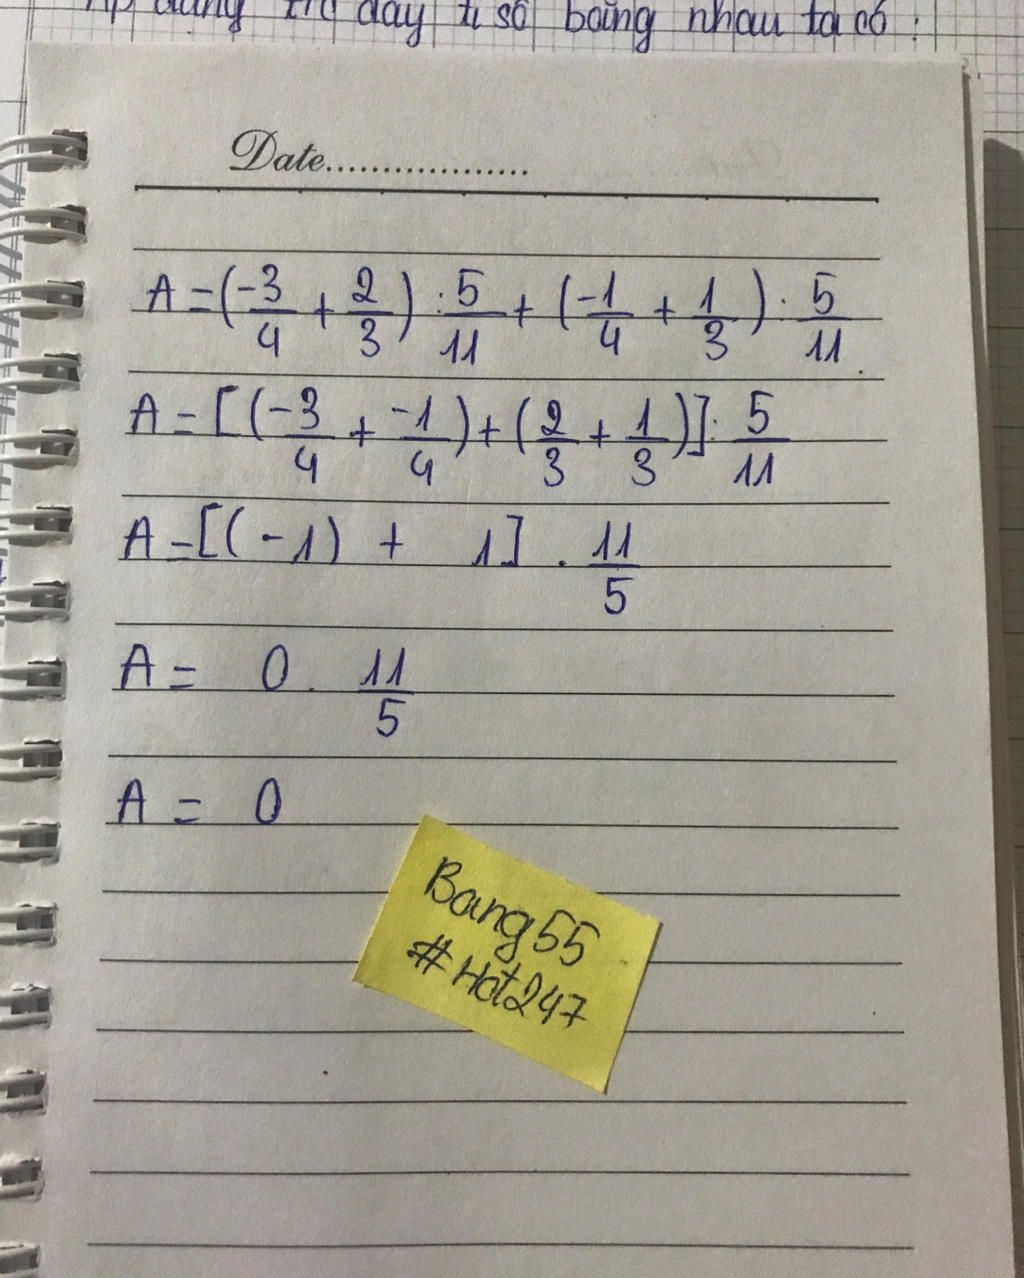 dãy tỉ số bằng nhau ta có :
Date..................
A = (-3/4 + 2/3) : 5/11 + (-1/4 + 1/3) : 5/11
A = [(-3/4 + -1/4) + (2/3 + 1/3)] : 5/11
A = [(-1) + 1] . 11/5
A = 0 . 11/5
A = 0
Bang55
#Hot247